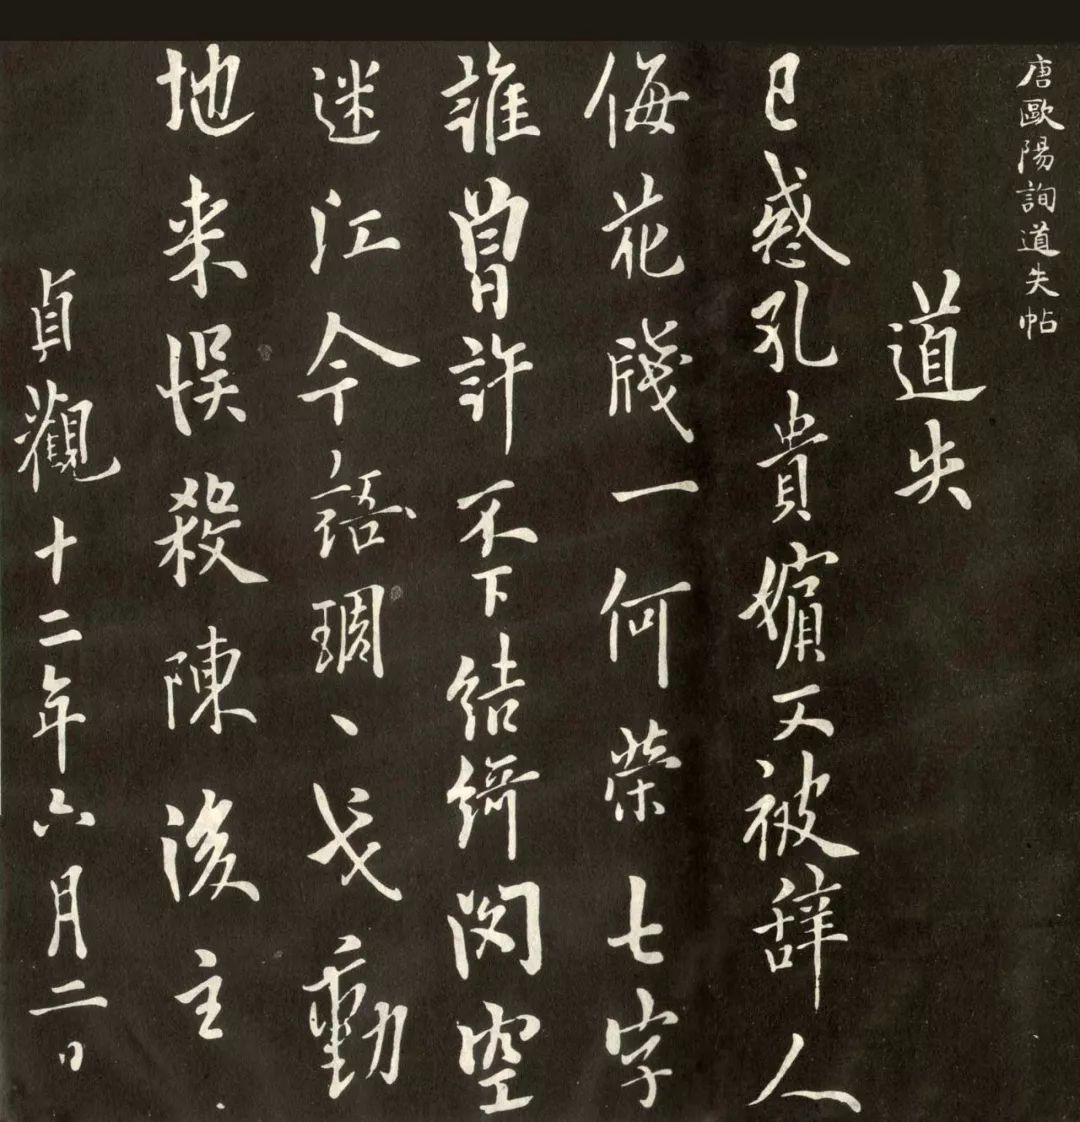 唐歐陽詢道失帖
道失
已惑孔貴嬪又被辞人
侮花牋一何荣七字
誰曾許不下结绮閣空
迷江令語琱丶戈動
地来悮殺陳後主
貞觀十二年六月二日